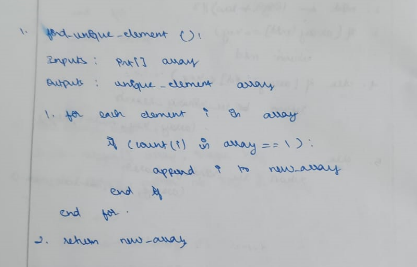 1. find_unique_element ():
Inputs : int[] array
Outputs : unique_element array
1. for each element i in array
if (count(i) in array == 1) :
append i to new_array
end if
end for.
2. return new_array